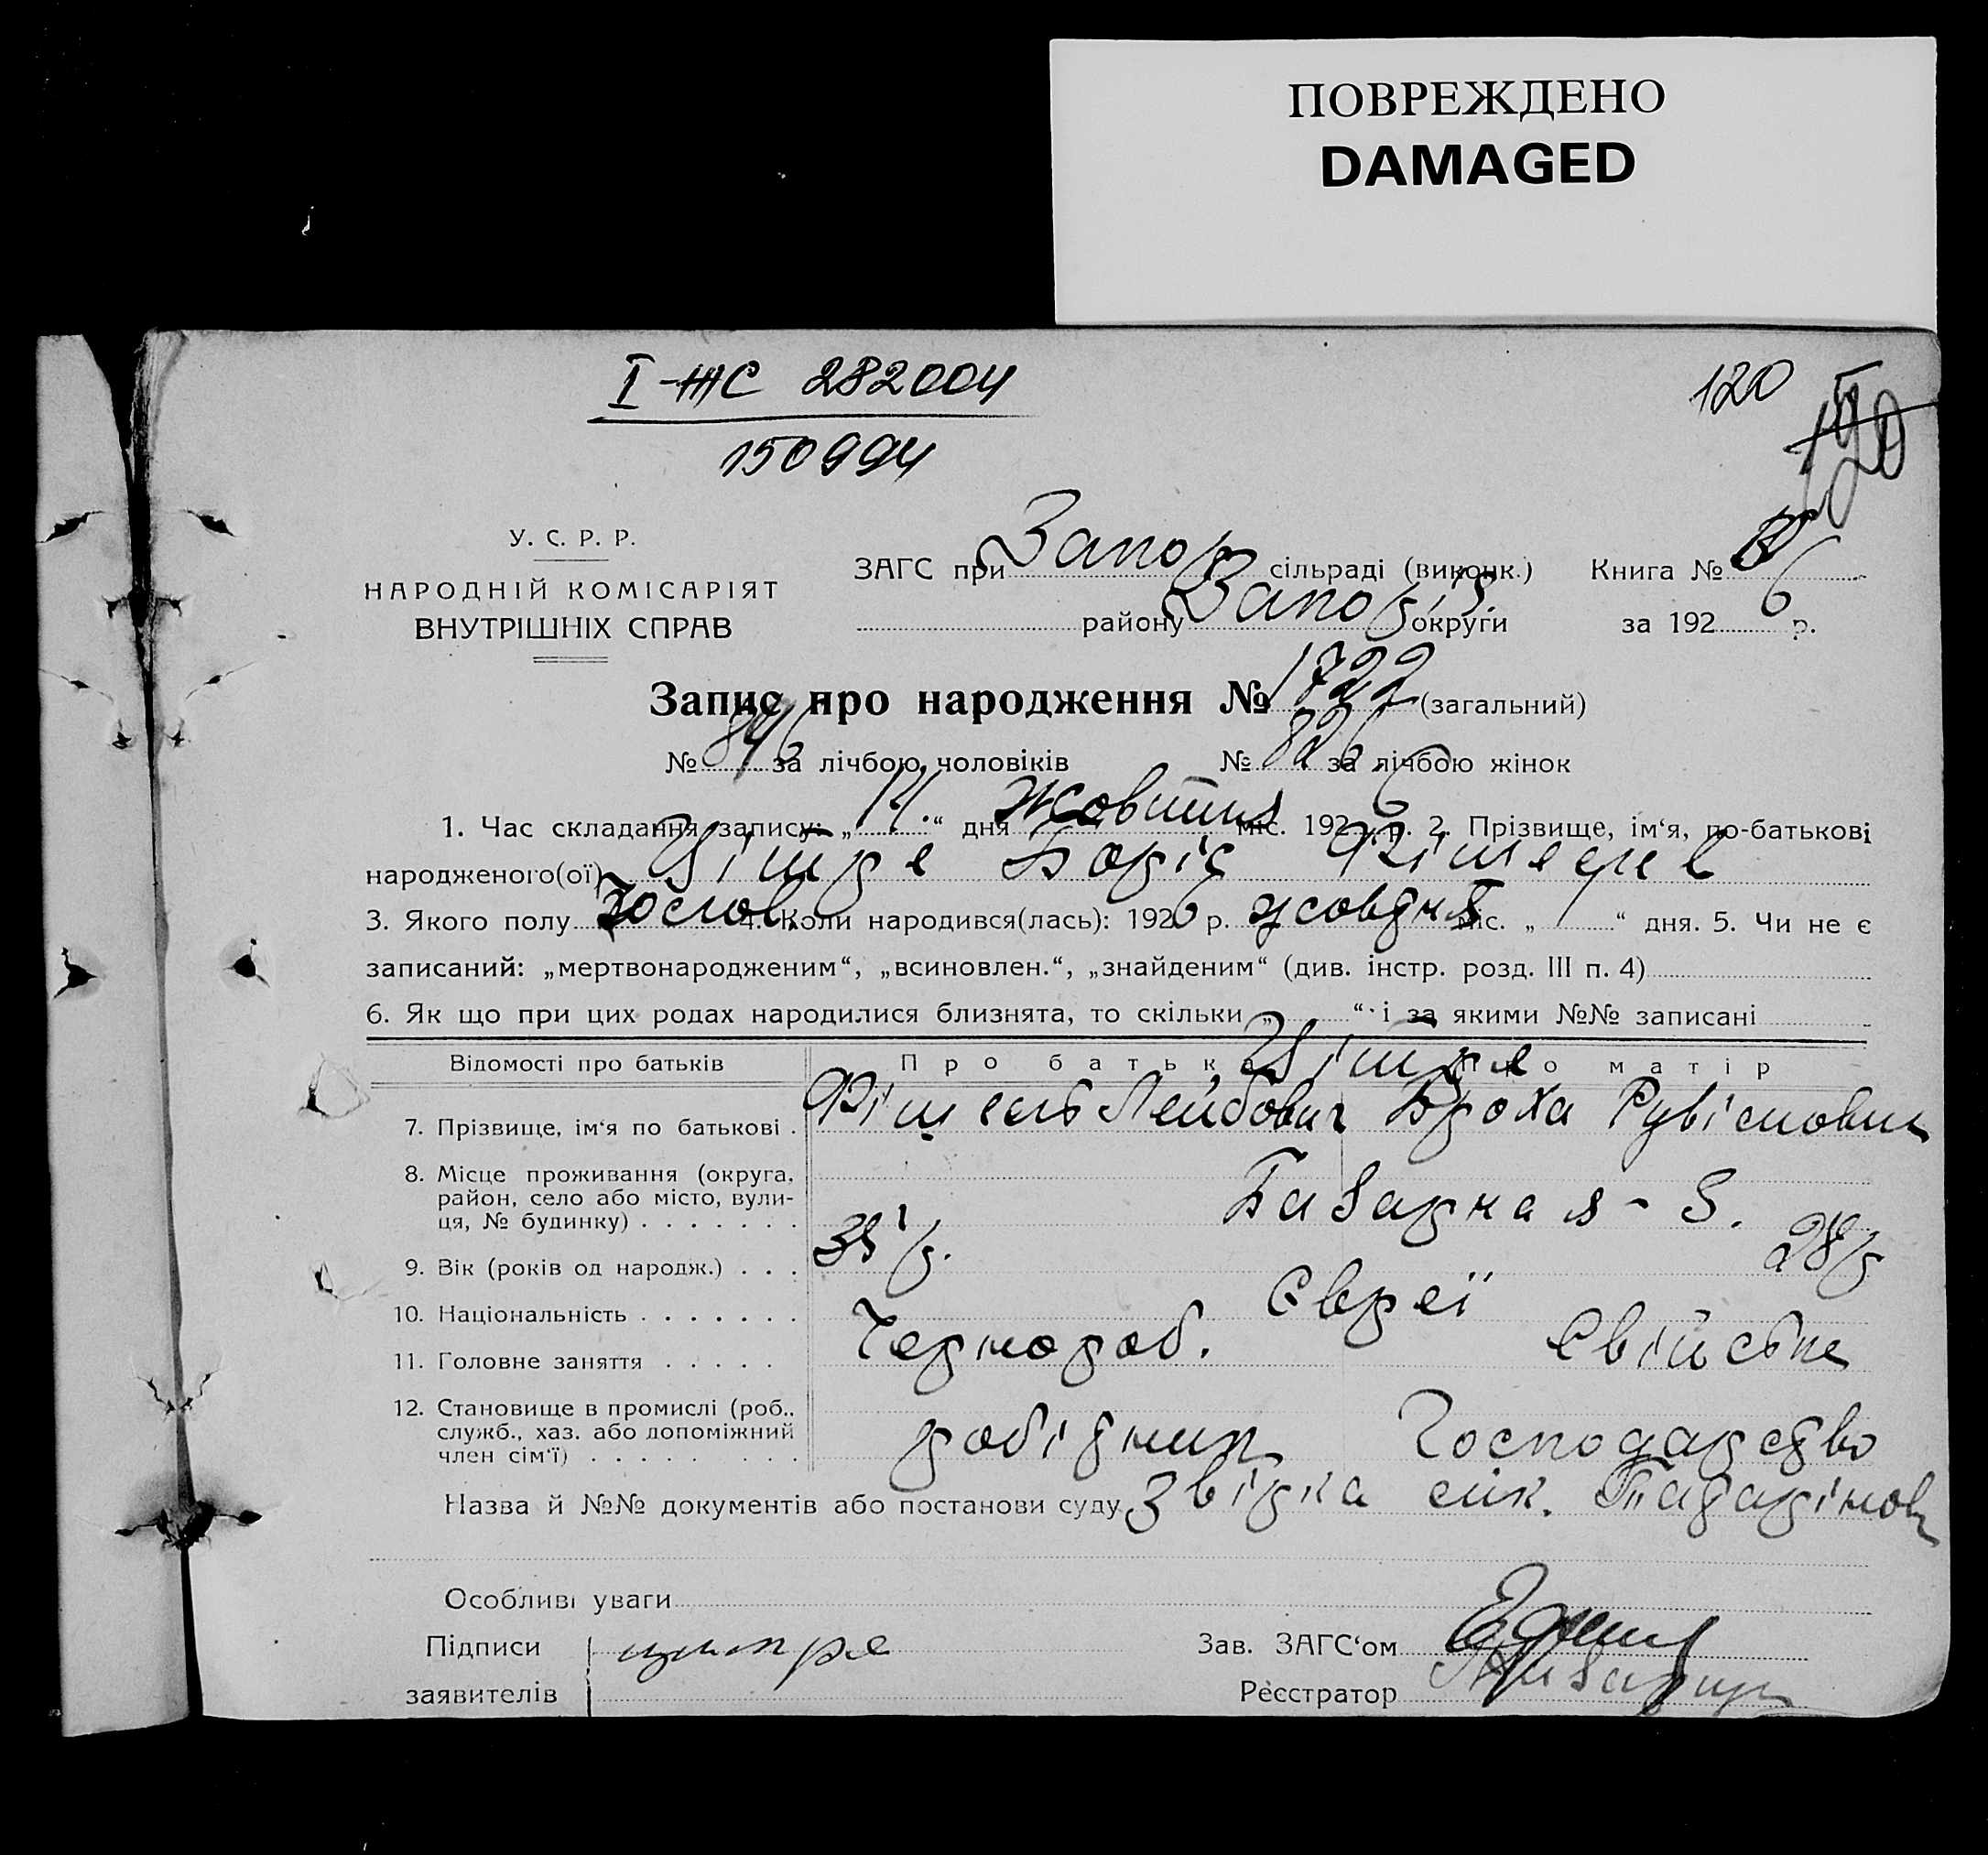 ПОВРЕЖДЕНО
DAMAGED
І-ЖС 282004
150994
120
У. С. Р. Р.
НАРОДНІЙ КОМІСАРІЯТ
ВНУТРІШНІХ СПРАВ
ЗАГС при Запор сільраді (виконк.) Книга №
району Запор. округи за 1926 р.
Запис про народження № 1722 (загальний)
№ 896 за лічбою чоловіків № 826 за лічбою жінок
1. Час складання запису: „14“ дня жовтня міс. 1926 р. 2. Прізвище, ім‘я, по-батькові
народженого(ої) Цітре Боріс Фішелів
3. Якого полу 4. Коли народився(лась): 1926 р. жовтня міс. „ “ дня. 5. Чи не є
записаний: „мертвонародженим“, „всиновлен.“, „знайденим“ (див. інстр. розд. III п. 4)
6. Як що при цих родах народилися близнята, то скільки „ “ і за якими №№ записані
Відомості про батьків Про батька Про матір
Цітре
7. Прізвище, ім‘я по батькові . Фішель Лейбович Броха Рувімовна
8. Місце проживання (округа,
район, село або місто, вули-
ця, № будинку) . . . . . . . Базарна я - 8.
9. Вік (років од народж.) . . . 28 р
10. Національність . . . . . . . Євреї
11. Головне заняття . . . . . Чернороб. Свійське
12. Становище в промислі (роб.,
служб., хаз. або допоміжний
член сім‘ї) . . . . . . . . . робітник Господарство
Назва й №№ документів або постанови суду Звірка
Особливі уваги
Підписи цитре Зав. ЗАГС‘ом
заявителів Реєстратор